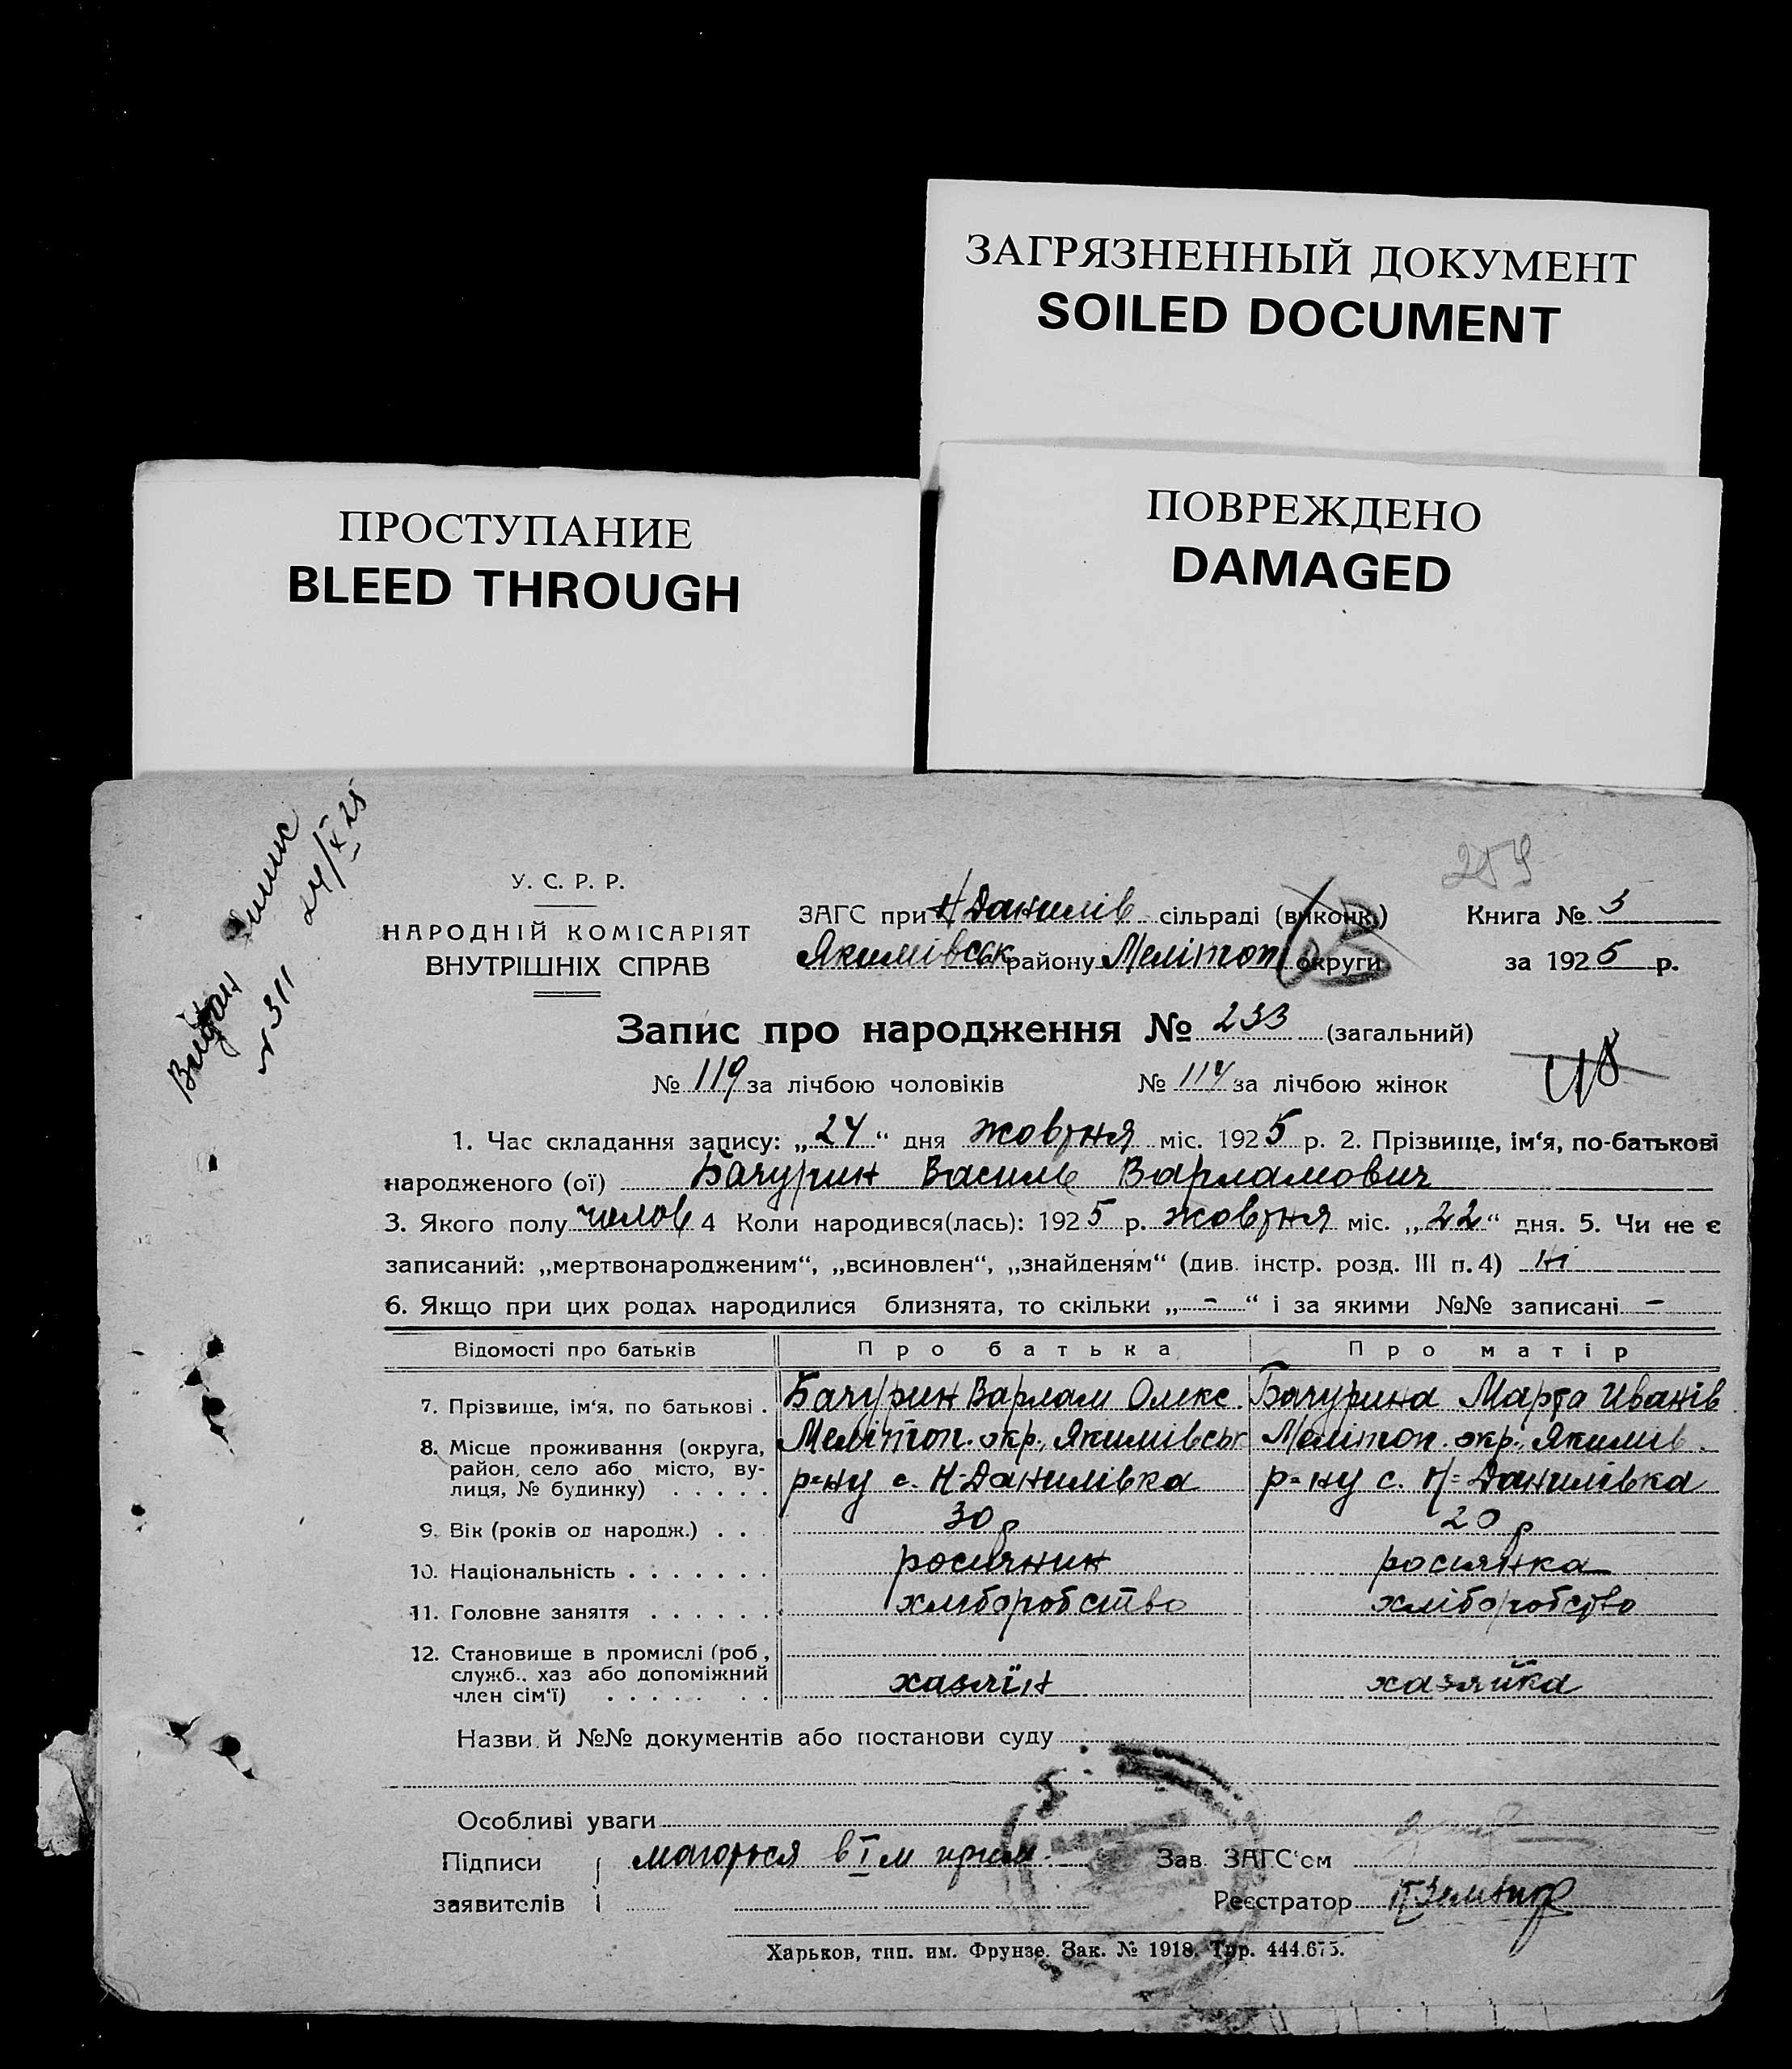 ЗАГРЯЗНЕННЫЙ ДОКУМЕНТ
SOILED DOCUMENT
ПРОСТУПАНИЕ
BLEED THROUGH
ПОВРЕЖДЕНО
DAMAGED
Видан
№ 311 24/X 25
259
У. С. Р. Р.
НАРОДНІЙ КОМІСАРІЯТ
ВНУТРІШНІХ СПРАВ
ЗАГС при Н Данилів сільраді (виконк.)
Якимівськ району Мелітоп округи
Книга № 3
за 1925 р.
Запис про народження № 233 (загальний)
№ 119 за лічбою чоловіків № 114 за лічбою жінок
1. Час складання запису: „24“ дня жовтня міс. 1925 р. 2. Прізвище, ім‘я, по-батькові
народженого (ої) Бачурин Василь Варламович
3. Якого полу чолов 4 Коли народився(лась): 1925 р. жовтня міс. „22“ дня. 5. Чи не є
записаний: „мертвонародженим“, „всиновлен“, „знайденям“ (див. інстр. розд. III п. 4) ні
6. Якщо при цих родах народилися близнята, то скільки „-“ і за якими №№ записані -
Відомості про батьків Про батька Про матір
7. Прізвище, ім‘я, по батькові . Бачурин Варлам Олекс. Бачурина Марта Иванів
8. Місце проживання (округа, район, село або місто, вулиця, № будинку) . . . . . Мелітоп. окр., Якимівськ р=ну с. Н-Данилівка Мелітоп. окр., Якимів. р=ну с. Н=Данилівка
9. Вік (років од народж.) . . 30 р 20 р
10. Національність . . . . . . . росіянин росіянка
11. Головне заняття . . . . . . хліборобство хліборобство
12. Становище в промислі (роб, служб., хаз або допоміжний член сім‘ї) . . . . . . . хазяїн хазяйка
Назви й №№ документів або постанови суду
Особливі уваги
Підписи в I м прим. Зав. ЗАГС‘ом
заявителів Реєстратор
Харьков, тип. им. Фрунзе. Зак. № 1918. Тир. 444.675.